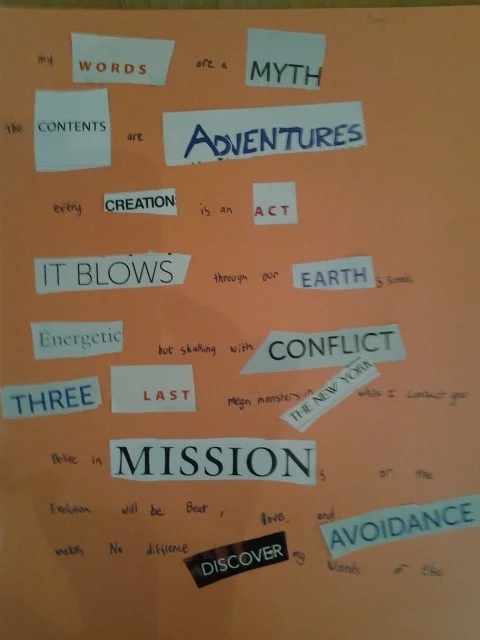 my WORDS are a MYTH
the CONTENTS are ADVENTURES
every CREATION is an ACT
IT BLOWS through our EARTH &
Energetic but shaking with CONFLICT
THREE LAST mega monsters in THE NEW YORK while I conduct you
Belive in MISSION s or the
Evolution will be Beat, love, and AVOIDANCE
making No diffrence DISCOVER my Words or Else